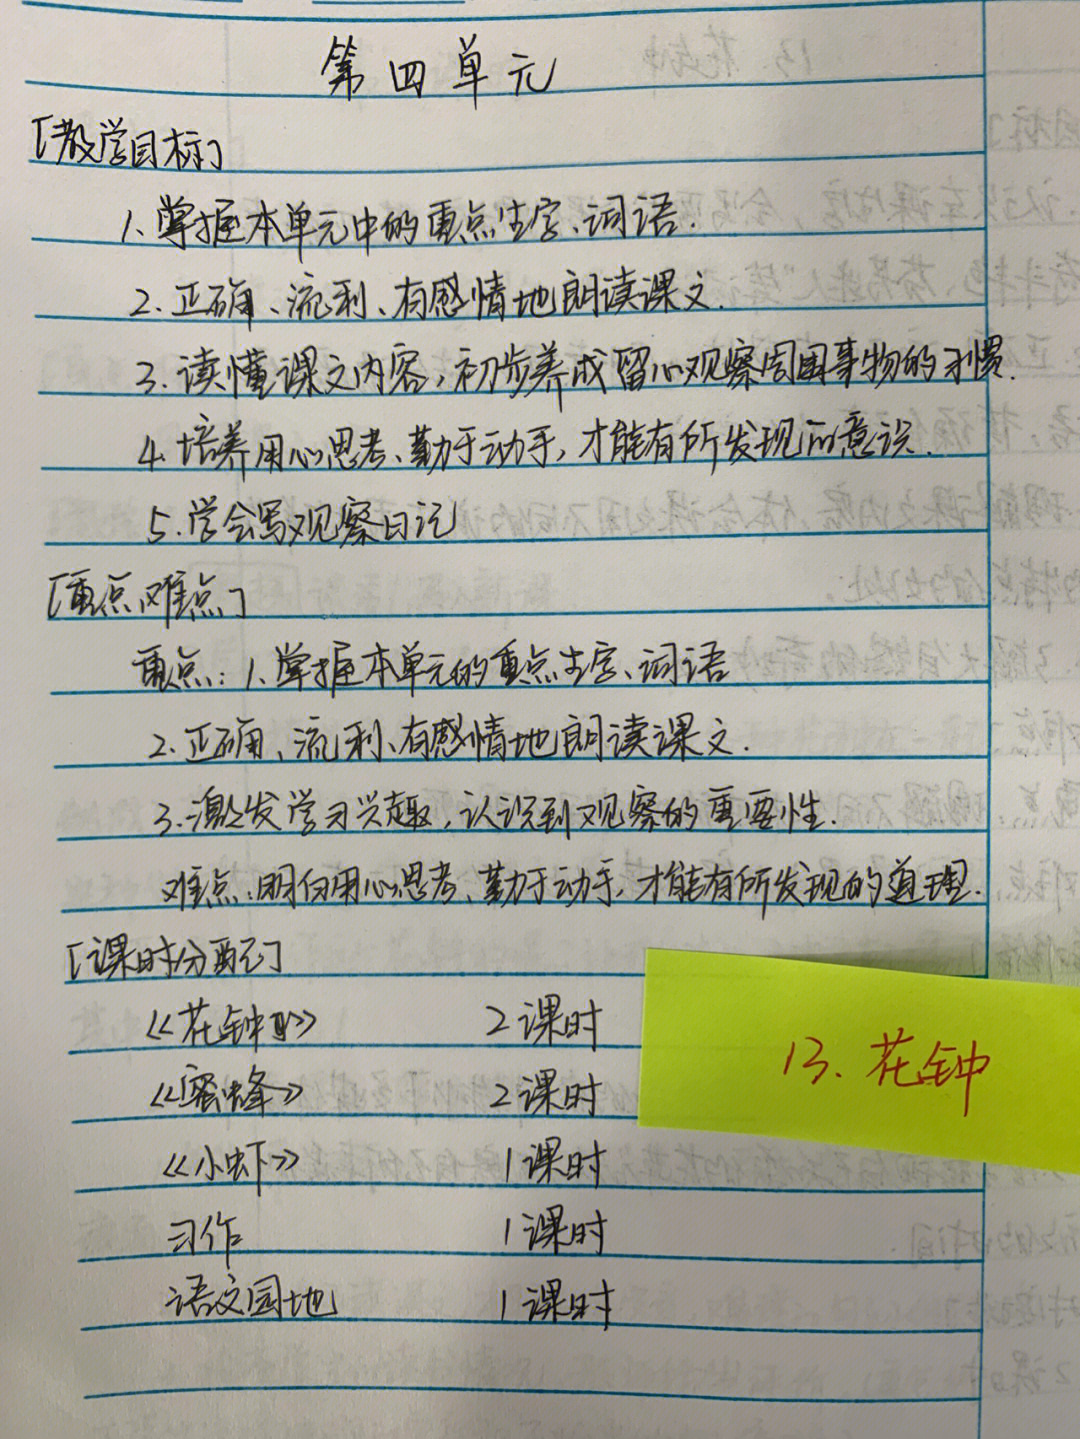 第四单元
[教学目标]
1.掌握本单元中的重点生字、词语.
2.正确、流利、有感情地朗读课文.
3.读懂课文内容,初步养成留心观察周围事物的习惯.
4.培养用心思考、勤于动手,才能有所发现的意识.
5.学会写观察日记
[重点难点]
重点:1.掌握本单元的重点生字、词语
2.正确、流利、有感情地朗读课文.
3.激发学习兴趣,认识到观察的重要性.
难点:明白用心思考、勤于动手,才能有所发现的道理.
[课时分配]
《花钟》 2课时
《蜜蜂》 2课时
《小虾》 1课时
习作 1课时
语文园地 1课时
13.花钟